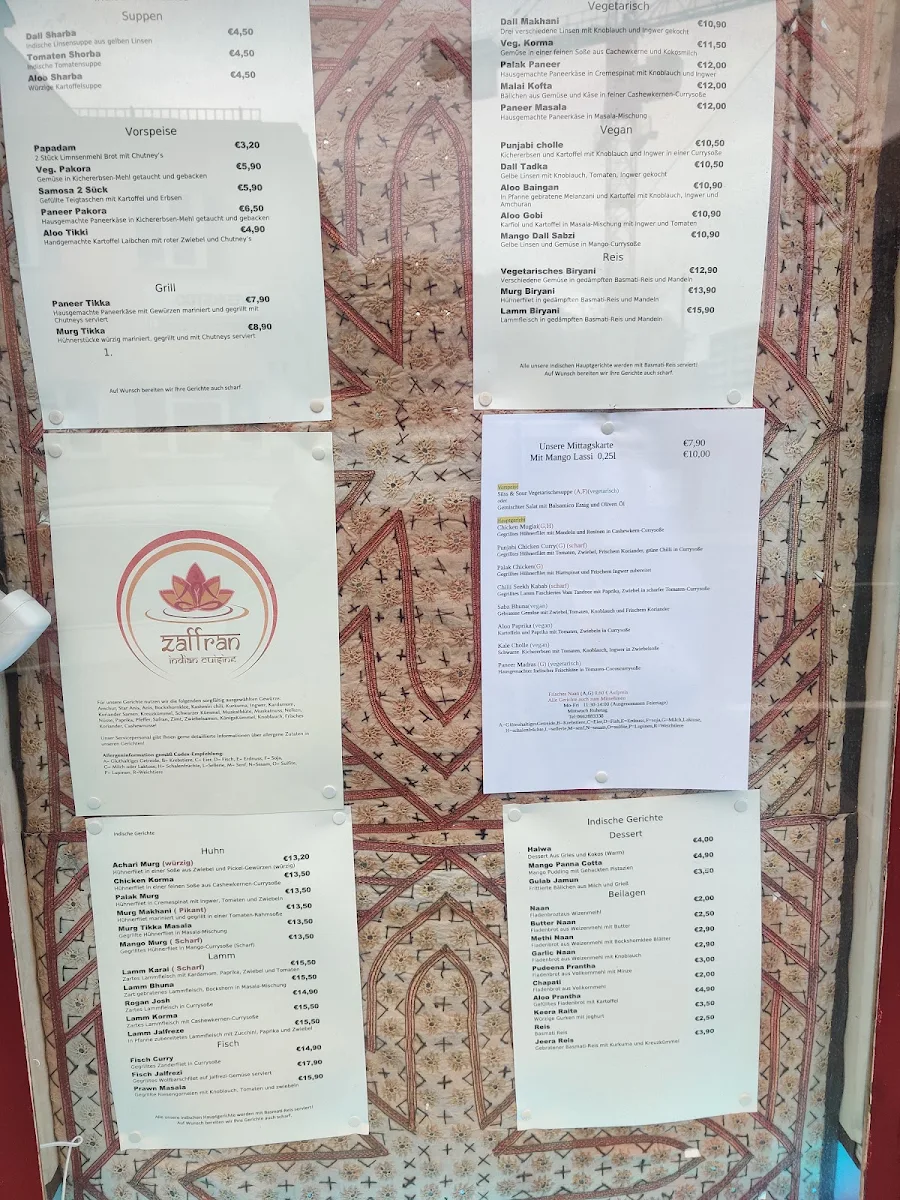 Suppen
Dall Sharba €4,50
Indische Linsensuppe aus gelben Linsen
Tomaten Shorba €4,50
Indische Tomatensuppe
Aloo Sharba €4,50
Würzige Kartoffelsuppe
Vorspeise
Papadam €3,20
2 Stück Limnsenmehl Brot mit Chutney's
Veg. Pakora €5,90
Gemüse in Kichererbsen-Mehl getaucht und gebacken
Samosa 2 Sück €5,90
Gefüllte Teigtaschen mit Kartoffel und Erbsen
Paneer Pakora €6,50
Hausgemachte Paneerkäse in Kichererbsen-Mehl getaucht und gebacken
Aloo Tikki €4,90
Handgemachte Kartoffel Laibchen mit roter Zwiebel und Chutney's
Grill
Paneer Tikka €7,90
Hausgemachte Paneerkäse mit Gewürzen mariniert und gegrillt mit
Chutneys serviert.
Murg Tikka €8,90
Hühnerstücke würzig mariniert, gegrillt und mit Chutneys serviert
1.
Auf Wunsch bereiten wir Ihre Gerichte auch scharf
Vegetarisch
Dall Makhani €10,90
Drei verschiedene Linsen mit Knoblauch und Ingwer gekocht
Veg. Korma €11,50
Gemüse in einer feinen Soße aus Cashewkerne und Kokosmilch
Palak Paneer €12,00
Hausgemachte Paneerkäse in Cremespinat mit Knoblauch und Ingwer
Malai Kofta €12,00
Bällchen aus Gemüse und Käse in feiner Cashewkernen-Currysoße
Paneer Masala €12,00
Hausgemachte Paneerkäse in Masala-Mischung
Vegan
Punjabi cholle €10,50
Kichererbsen und Kartoffel mit Knoblauch und Ingwer in einer Currysoße
Dall Tadka €10,50
Gelbe Linsen mit Knoblauch, Tomaten, Ingwer gekocht
Aloo Baingan €10,90
In Pfanne gebratene Melanzani und Kartoffel mit Knoblauch, Ingwer und
Amchuran
Aloo Gobi €10,90
Karfiol und Kartoffel in Masala-Mischung mit Ingwer und Tomaten
Mango Dall Sabzi €10,90
Gelbe Linsen und Gemüse in Mango-Currysoße
Reis
Vegetarisches Biryani €12,90
Verschiedene Gemüse in gedämpften Basmati-Reis und Mandeln
Murg Biryani €13,90
Hühnerfilet in gedämpften Basmati-Reis und Mandeln
Lamm Biryani €15,90
Lammfleisch in gedämpften Basmati-Reis und Mandeln
Alle unsere indischen Hauptgerichte werden mit Basmati-Reis serviert!
Auf Wunsch bereiten wir Ihre Gerichte auch scharf.
zaffran
indian cuisine
Für unsere Gerichte nutzen wir die folgenden sorgfältig ausgewählten Gewürze
Unser Servicepersonal gibt Ihnen gerne detaillierte Informationen über allergene Zutaten in
unseren Gerichten!
Allergeninformation gemäß Codex-Empfehlung:
A= Gluthaltiges Getreide, B= Krebstiere, C= Eier, D= Fisch, E= Erdnüsse, F= Soja,
G= Milch oder Laktose, H= Schalenfrüchte, L=Sellerie, M= Senf, N=Sesam, O= Sulfite,
P= Lupinen, R=Weichtiere
Unsere Mittagskarte €7,90
Mit Mango Lassi 0,25l €10,00
Vorspeise
Süss & Sour Vegetarischesuppe (A,F)(vegetarisch)
oder
Gemischter Salat mit Balsamico Essig und Oliven Öl
Hauptgericht
Chicken Muglai(G,H)
Gegrilltes Hühnerfilet mit Mandeln und Rosinen in Cashewkern-Currysoße
Punjabi Chicken Curry(G) (scharf)
Gegrilltes Hühnerfilet mit Tomaten, Zwiebel, Frischem Koriander, grüne Chilli in Currysoße
Palak Chicken(G)
Gegrilltes Hühnerfilet mit Blattspinat und Frischem Ingwer zubereitet
Chilli Seekh Kabab (scharf)
Gegrilltes Lamm Faschiertes Vom Tandoor mit Paprika, Zwiebel in scharfer Tomaten-Currysoße
Sabz Bhuna(vegan)
Gebratene Gemüse mit Zwiebel, Tomaten, Knoblauch und Frischem Koriander
Aloo Paprika (vegan)
Kartoffeln und Paprika mit Tomaten, Zwiebeln in Currysoße
Kale Cholle (vegan)
Schwarze Kichererbsen mit Tomaten, Knoblauch, Ingwer in Zwiebelsoße
Paneer Madras (G) (vegetarisch)
Hausgemachter Indischer Frischkäse in Tomaten-Cocoscurrysoße
Frisches Naan (A,G) 0,90 € Aufpreis
Alle Gerichte auch zum Mitnehmen
Mo-Fri 11:30-14:00 (Ausgenommen Feiertage)
Mittwoch Ruhetag
Indische Gerichte
Huhn
Achari Murg (würzig) €13,20
Hühnerfilet in einer Soße aus Zwiebel und Pickel-Gewürzen (würzig)
Chicken Korma €13,50
Hühnerfilet in einer feinen Soße aus Cashewkernen-Currysoße
Palak Murg €13,50
Hühnerfilet in Cremespinat mit Ingwer, Tomaten und Zwiebeln
Murg Makhani ( Pikant) €13,50
Hühnerfilet mariniert und gegrillt in einer Tomaten-Rahmsoße
Murg Tikka Masala €13,50
Gegrillte Hühnerfilet in Masala-Mischung
Mango Murg ( Scharf) €13,50
Gegrilltes Hühnerfilet in Mango-Currysoße (Scharf)
Lamm
Lamm Karai ( Scharf) €15,50
Zartes Lammfleisch mit Kardamom, Paprika, Zwiebel und Tomaten
Lamm Bhuna €15,50
Zart gebratenes Lammfleisch, Bockshorn in Masala-Mischung
Rogan Josh €14,90
Zartes Lammfleisch in Currysoße
Lamm Korma €15,50
Zartes Lammfleisch mit Cashewkernen-Currysoße
Lamm Jalfreze €15,50
In Pfanne zubereitetes Lammfleisch mit Zucchini, Paprika und Zwiebel
Fisch
Fisch Curry €14,90
Gegrilltes Zanderfilet in Currysoße
Fisch Jalfrezi €17,90
Gegrilltes Wolfbarschfilet auf Jalfrezi-Gemüse serviert
Prawn Masala €15,90
Gegrillte Riesengarnelen mit Knoblauch, Tomaten und zwiebeln
Alle unsere indischen Hauptgerichte werden mit Basmati-Reis serviert!
Auf Wunsch bereiten wir Ihre Gerichte auch scharf.
Indische Gerichte
Dessert
Halwa €4,00
Dessert Aus Gries und Kokos (Warm)
Mango Panna Cotta €4,90
Mango Pudding mit Gehackten Pistazien
Gulab Jamun €3,50
Frittierte Bällchen aus Milch und Grieß
Beilagen
Naan €2,00
Fladenbrotaus Weizenmehl
Butter Naan €2,50
Fladenbrot aus Weizenmehl mit Butter
Methi Naan €2,90
Fladenbrot aus Weizenmehl mit Bockshornklee Blätter
Garlic Naan €2,90
Fladenbrot aus Weizenmehl mit Knoblauch
Pudeena Prantha €3,00
Fladenbrot aus Vollkornmehl mit Minze
Chapati €2,00
Fladenbrot aus Vollkornmehl
Aloo Prantha €4,90
Gefülltes Fladenbrot mit Kartoffel
Keera Raita €3,50
Würzige Gurken mit Joghurt
Reis €2,50
Basmati Reis
Jeera Reis €3,90
Gebratener Basmati-Reis mit Kurkuma und Kreuzkümmel